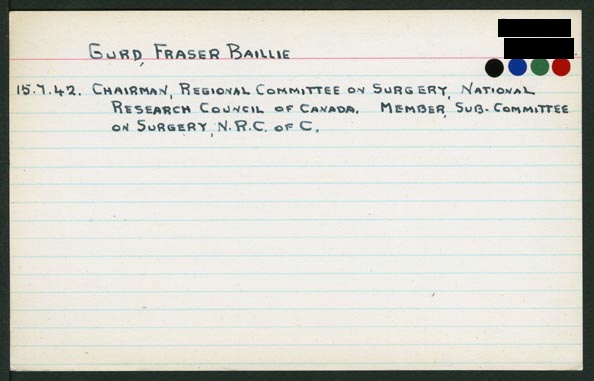 GURD, FRASER BAILLIE
15.7.42. CHAIRMAN, REGIONAL COMMITTEE ON SURGERY, NATIONAL
RESEARCH COUNCIL OF CANADA. MEMBER, SUB-COMMITTEE
ON SURGERY, N.R.C. OF C.